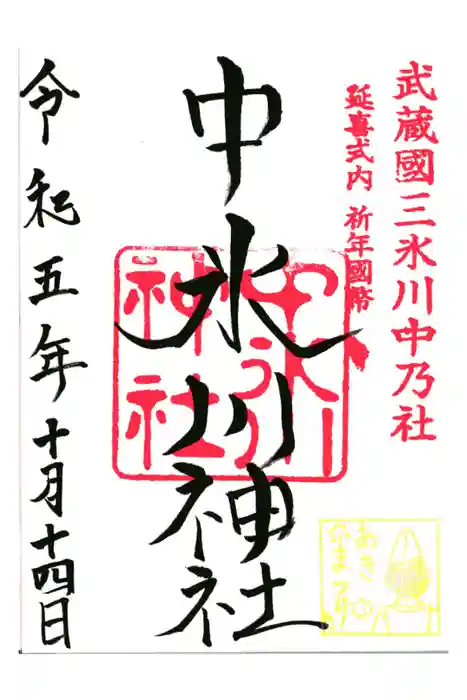 武蔵國三氷川中乃社
延喜式内 祈年國幣
中氷川神社
中氷川
神社
令和五年十月十四日
あきの